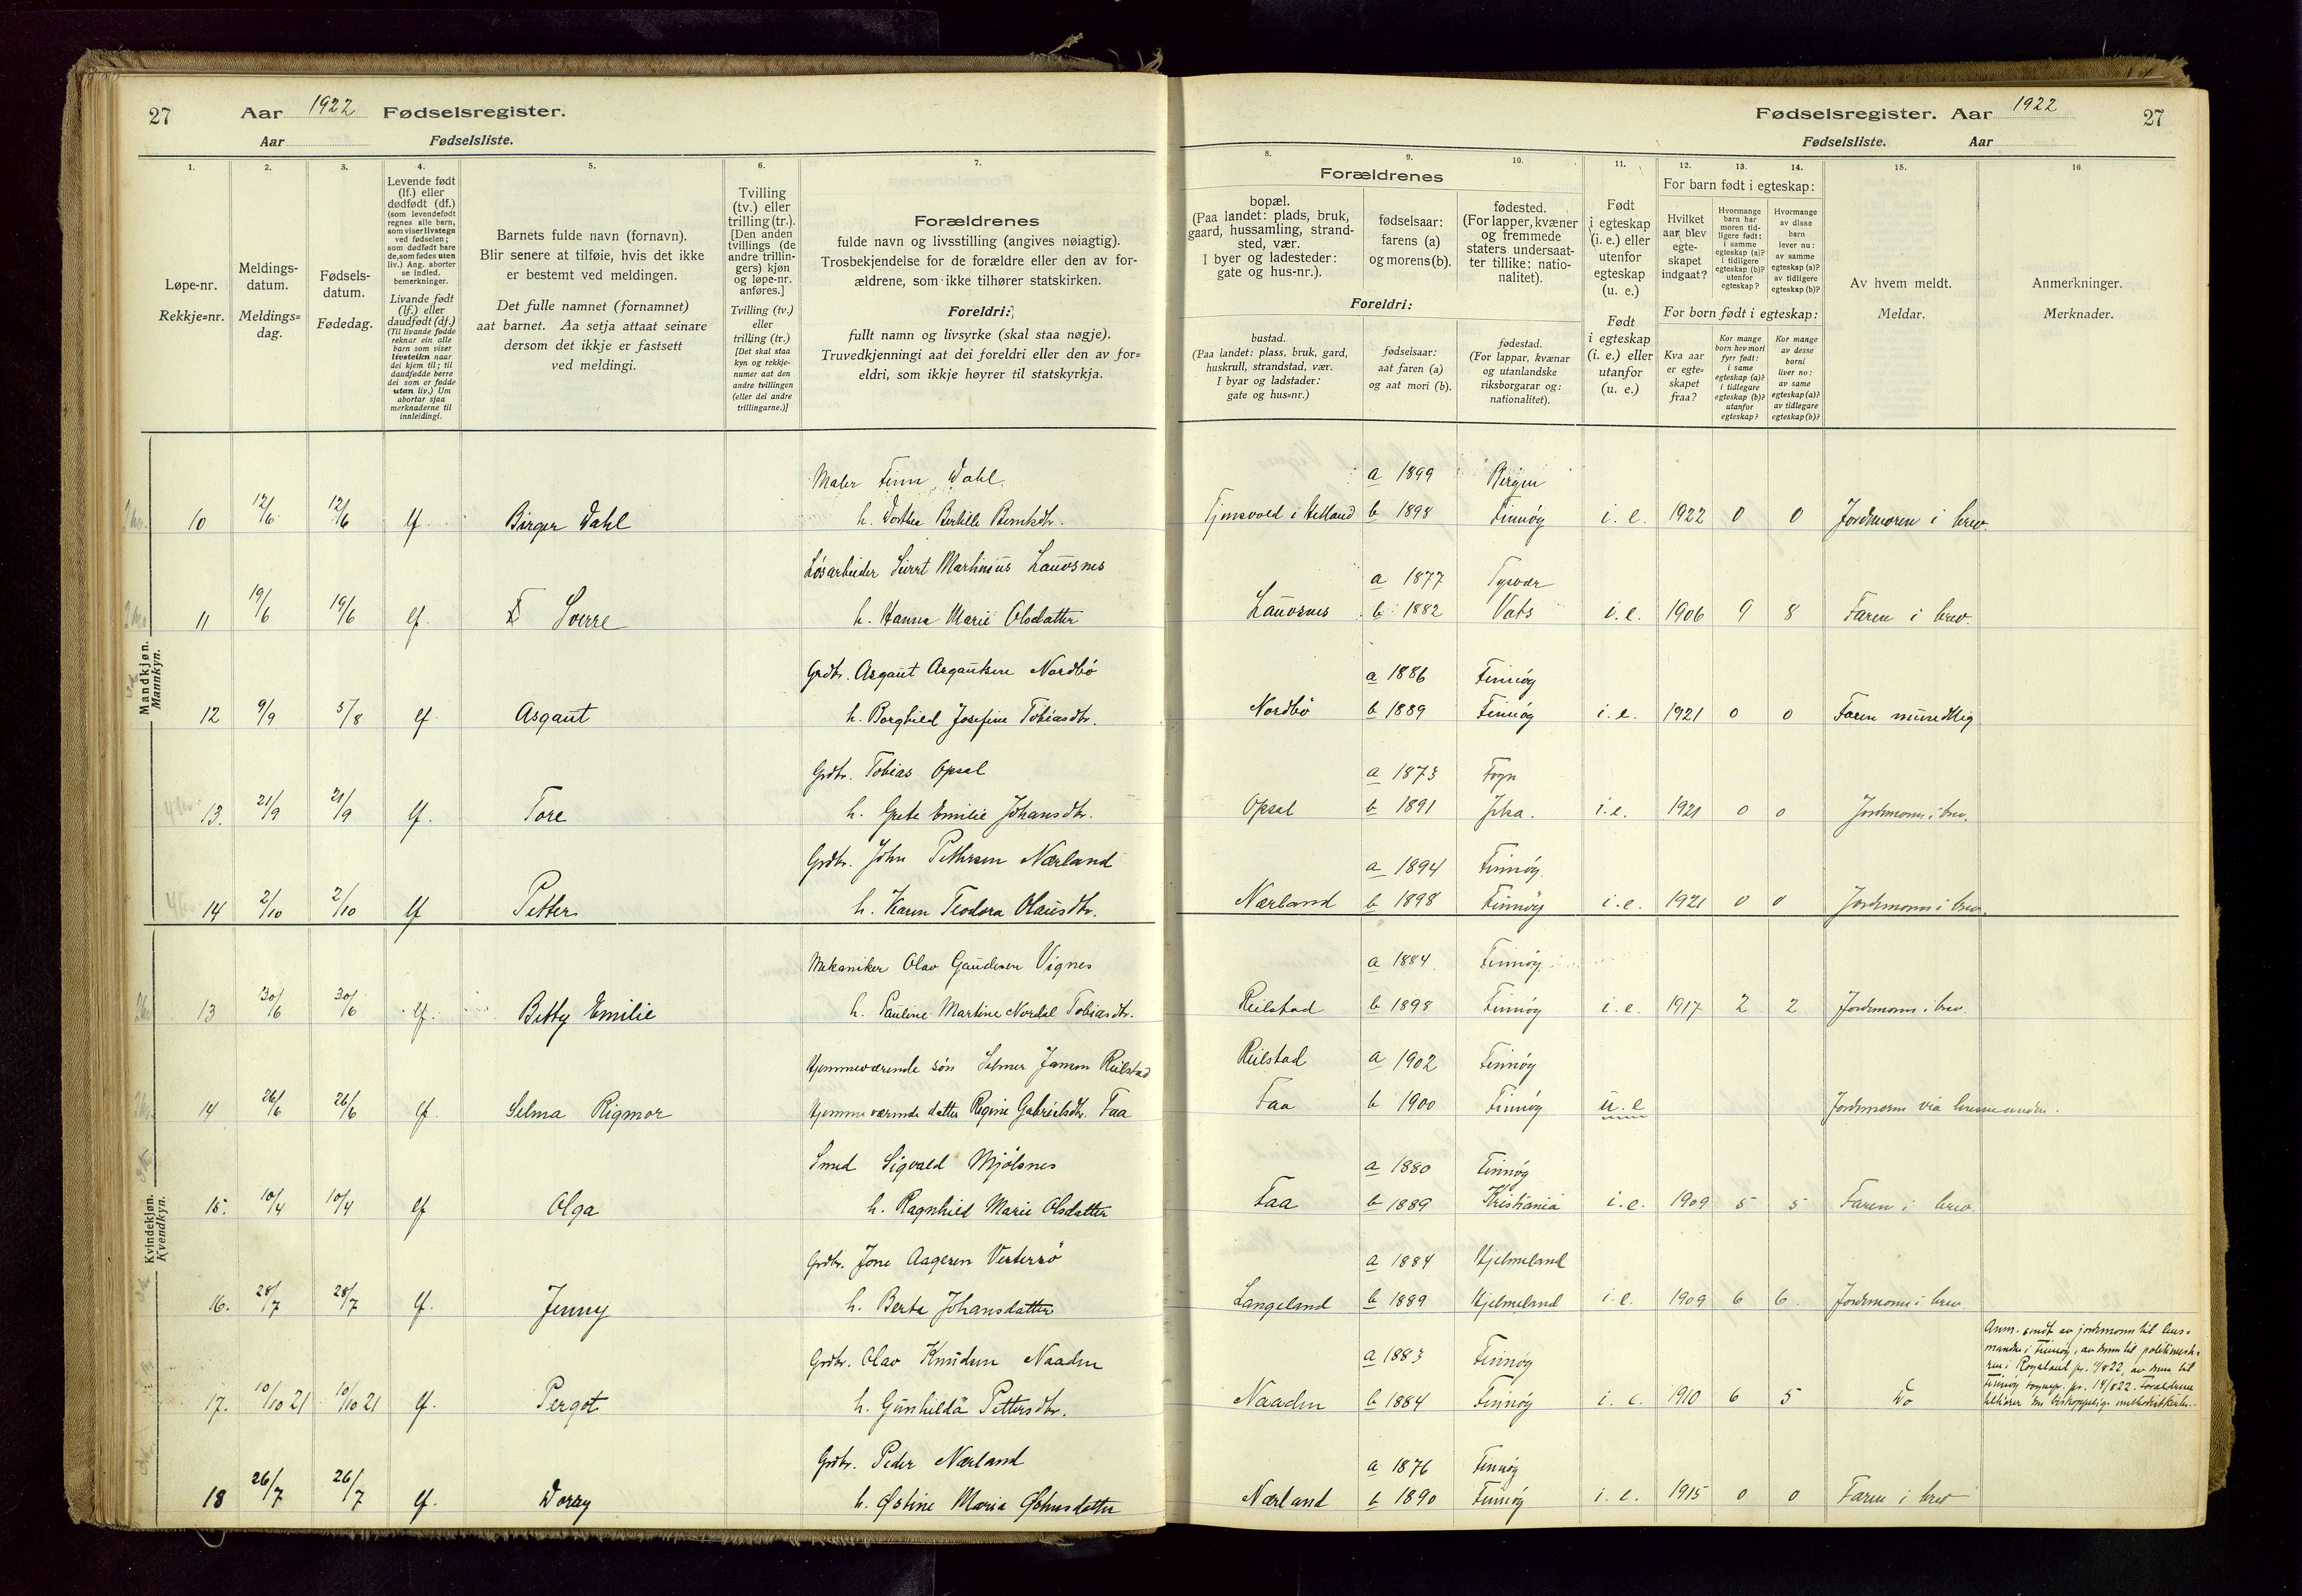 27 Aar 1922 Fødselsregister.
Aar Fødselsliste.
1.
2.
3.
4.
5.
6.
7.
Løpe-nr.
Rekkje=nr.
Meldings-
datum.
Meldings=
dag.
Fødsels-
datum.
Fødedag.
Levende født
(lf.) eller
dødfødt (df.)
(som levendefødt
regnes alle barn,
som viser livstegn
ved fødselen;
som dødfødt bare
de, som fødes uten
liv.) Ang. aborter
se indled.
bemerkninger.
Livande født
(lf.) eller
daudfødt (df.)
(Til livande fødde
reknar ein alle
barn som viser
livsteikn naar
dei kjem til; til
daudfødde berre
dei som er fødde
utan liv.) Um
abortar sjaa
merknaderne til
innleidingi.
Barnets fulde navn (fornavn).
Blir senere at tilføie, hvis det ikke
er bestemt ved meldingen.
Det fulle namnet (fornamnet)
aat barnet. Aa setja attaat seinare
dersom det ikkje er fastsett
ved meldingi.
Tvilling
(tv.) eller
trilling (tr.).
[Den anden
tvillings (de
andre trillin-
gers) kjøn
og løpe-nr.
anføres.]
Tvilling (tv.)
eller
trilling (tr.)
[Det skal staa
kyn og rekkje-
numer aat den
andre tvillingen
(eller dei andre
trillingarne.)]
Forældrenes
fulde navn og livsstilling (angives nøiagtig).
Trosbekjendelse for de forældre eller den av for-
ældrene, som ikke tilhører statskirken.
Foreldri:
fullt namn og livsyrke (skal staa nøgje).
Truvedkjenningi aat dei foreldri eller den av for=
eldri, som ikkje høyrer til statskyrkja.
Mandkjøn.
Mannkyn.
Maler Finn Dahl.
10 12/6 12/6 lf. Birger Dahl h. Dorthea Bertille Berntsdtr.
Løsarbeider Sivert Martinius Lauvsnes
11 19/6 19/6 lf. Sverre h. Hanna Marie Olsdatter
Grdbr. Asgaut Asgautsen Nordbø
12 9/9 5/8 lf. Asgaut h. Borghild Josefine Tobiasdtr.
Grdbr. Tobias Opsal
13. 21/9 21/9 lf. Tore h. Grete Emilie Johansdtr.
Grdbr. John Pettersen Nærland
14 2/10 2/10 lf Petter h. Karen Teodora Olausdtr.
Kvindekjøn.
Kvendkyn.
Mekaniker Olav Gaudesen Vignes
13 30/6 30/6 lf. Betty Emilie h. Pauline Martine Nordal Tobiasdtr.
Hjemmeværende søn Selmer Jansen Reilstad
14 26/6 26/6 lf. Selma Rigmor Hjemmeværende datter Regine Gabrielsdtr. Faa
Smed Sigvald Mjølsnes
15. 10/4 10/4 lf Olga h. Ragnhild Marie Olsdatter
Grdbr. Jone Aagesen Vestersø
16. 28/7 28/7 lf. Jenny h. Berta Johansdatter
Grdbr. Olav Knudsen Naaden
17. 10/10 21 10/10 21 lf. Pergot h. Gunhilda Pettersdtr.
Grdbr. Peder Nærland
18 26/7 26/7 lf. Dorry h. Østine Maria Østensdatter
Fødselsregister. Aar 1922 27
Fødselsliste. Aar
8.
9.
10.
11.
12.
13.
14.
15.
16.
Forældrenes
bopæl.
(Paa landet: plads, bruk,
gaard, hussamling, strand-
sted, vær.
I byer og ladesteder:
gate og hus-nr.).
fødselsaar:
farens (a)
og morens (b).
fødested.
(For lapper, kvæner
og fremmede
staters undersaat-
ter tillike: natio-
nalitet).
Foreldri:
bustad.
(Paa landet: plass, bruk, gard,
huskrull, strandstad, vær.
I byar og ladstader:
gate og hus=nr.)
fødselsaar:
aat faren (a)
og aat mori (b).
fødestad.
(For lappar, kvænar
og utanlandske
riksborgarar og:
nationalitet).
Født
i egteskap
(i. e.) eller
utenfor
egteskap
(u. e.)
Født
i egteskap
(i. e.) eller
utanfor
(u. e.)
For barn født i egteskap:
Hvilket
aar blev
egte-
skapet
indgaat?
Hvormange
barn har
moren tid-
ligere født:
i samme
egteskap (a)?
i tidligere
egteskap (b)?
utenfor
egteskap?
Hvormange
av disse
barn
lever nu:
av samme
egteskap (a)?
av tidligere
egteskap (b)?
For born født i egteskap:
Kva aar
er egte=
skapet
fraa?
Kor mange
born hev mori
fyrr født:
i same
egteskap (a)?
i tidlegare
egteskap (b)?
utanfor
egteskap?
Kor mange
av desse
borni
liver no:
av same
egteskap (a)?
av tidlegare
egteskap (b)?
Av hvem meldt.
Meldar.
Anmerkninger.
Merknader.
a 1899 Bergen
Tjensvold i Hetland b 1898 Finnøy i. e. 1922 0 0 Jordmoren i brev.
a 1877 Tysvær
Lauvsnes b 1882 Vats i. e. 1906 9 8 Faren i brev.
a 1886 Finnøy
Nordbø b 1889 Finnøy i. e. 1921 0 0 Faren mundtlig
a 1873 Fogn
Opsal b 1891 Jelsa. i. e. 1921 0 0 Jordmoren i brev.
a 1894 Finnøy.
Nærland b 1898 Finnøy i. e. 1921 0 0 Jordmoren i brev.
a 1884 Finnøy.
Reilstad b 1898 Finnøy i. e. 1917 2 2 Jordmoren i brev.
Reilstad a 1902 Finnøy
Faa b 1900 Finnøy u. e Jordmoren via lensmanden.
a 1880 Finnøy
Faa b 1889 Kristiania i. e. 1909 5 5 Faren i brev
a 1884 Hjelmeland
Langeland b 1889 Hjelmeland i. e. 1909 6 6. Jordmoren i brev.
a 1883 Finnøy
Naaden b 1884 Finnøy i. e. 1910 6 5 Do
Anm. sendt av jordmoren til lens-
manden i Finnøy, av denne til politimeste-
ren i Rogaland pr. /822, av denne til
Finnøy sognepr. pr. 14/822. Forældrene
tilhører den biskoppelig. methodistkirke.
a 1876 Finnøy
Nærland b 1890 Finnøy i. e. 1915 0 0 Faren i brev